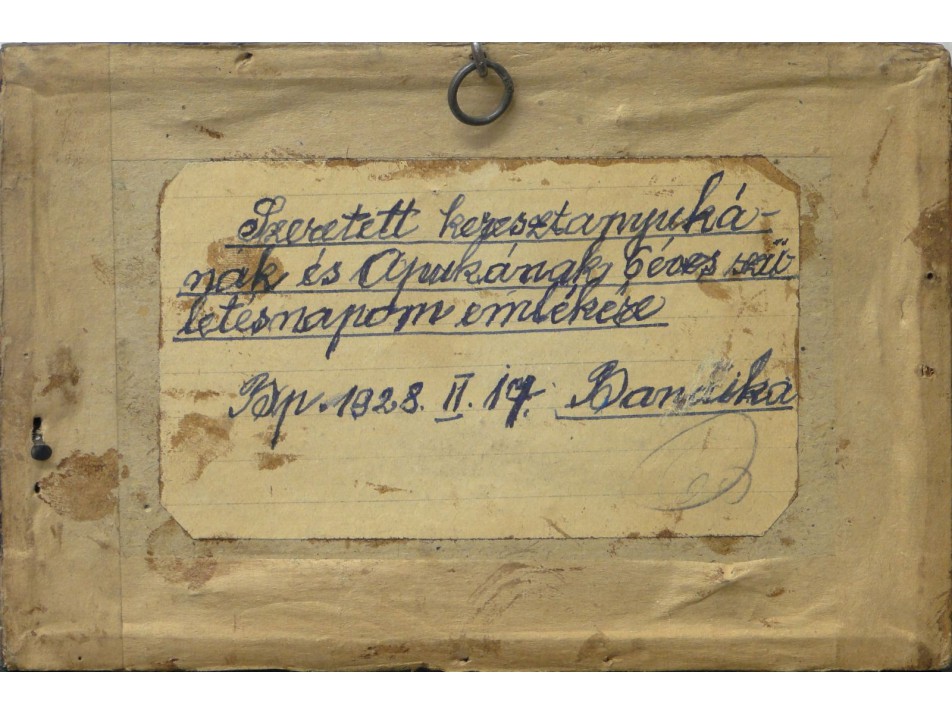 Szeretett keresztanyuká-
nak és Apukának, 6 éves szü
letésnapom emlékére
Bp. 1928. II. 17. Bandika